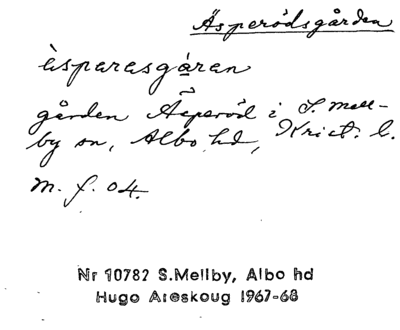 Äsperödsgården
èsparasgáran
gården Äsperöd i S. Mell-
by sn, Albo hd, Krist. l.
m. f. 04.
Nr 10782 S.Mellby, Albo hd
Hugo Areskoug 1967-68